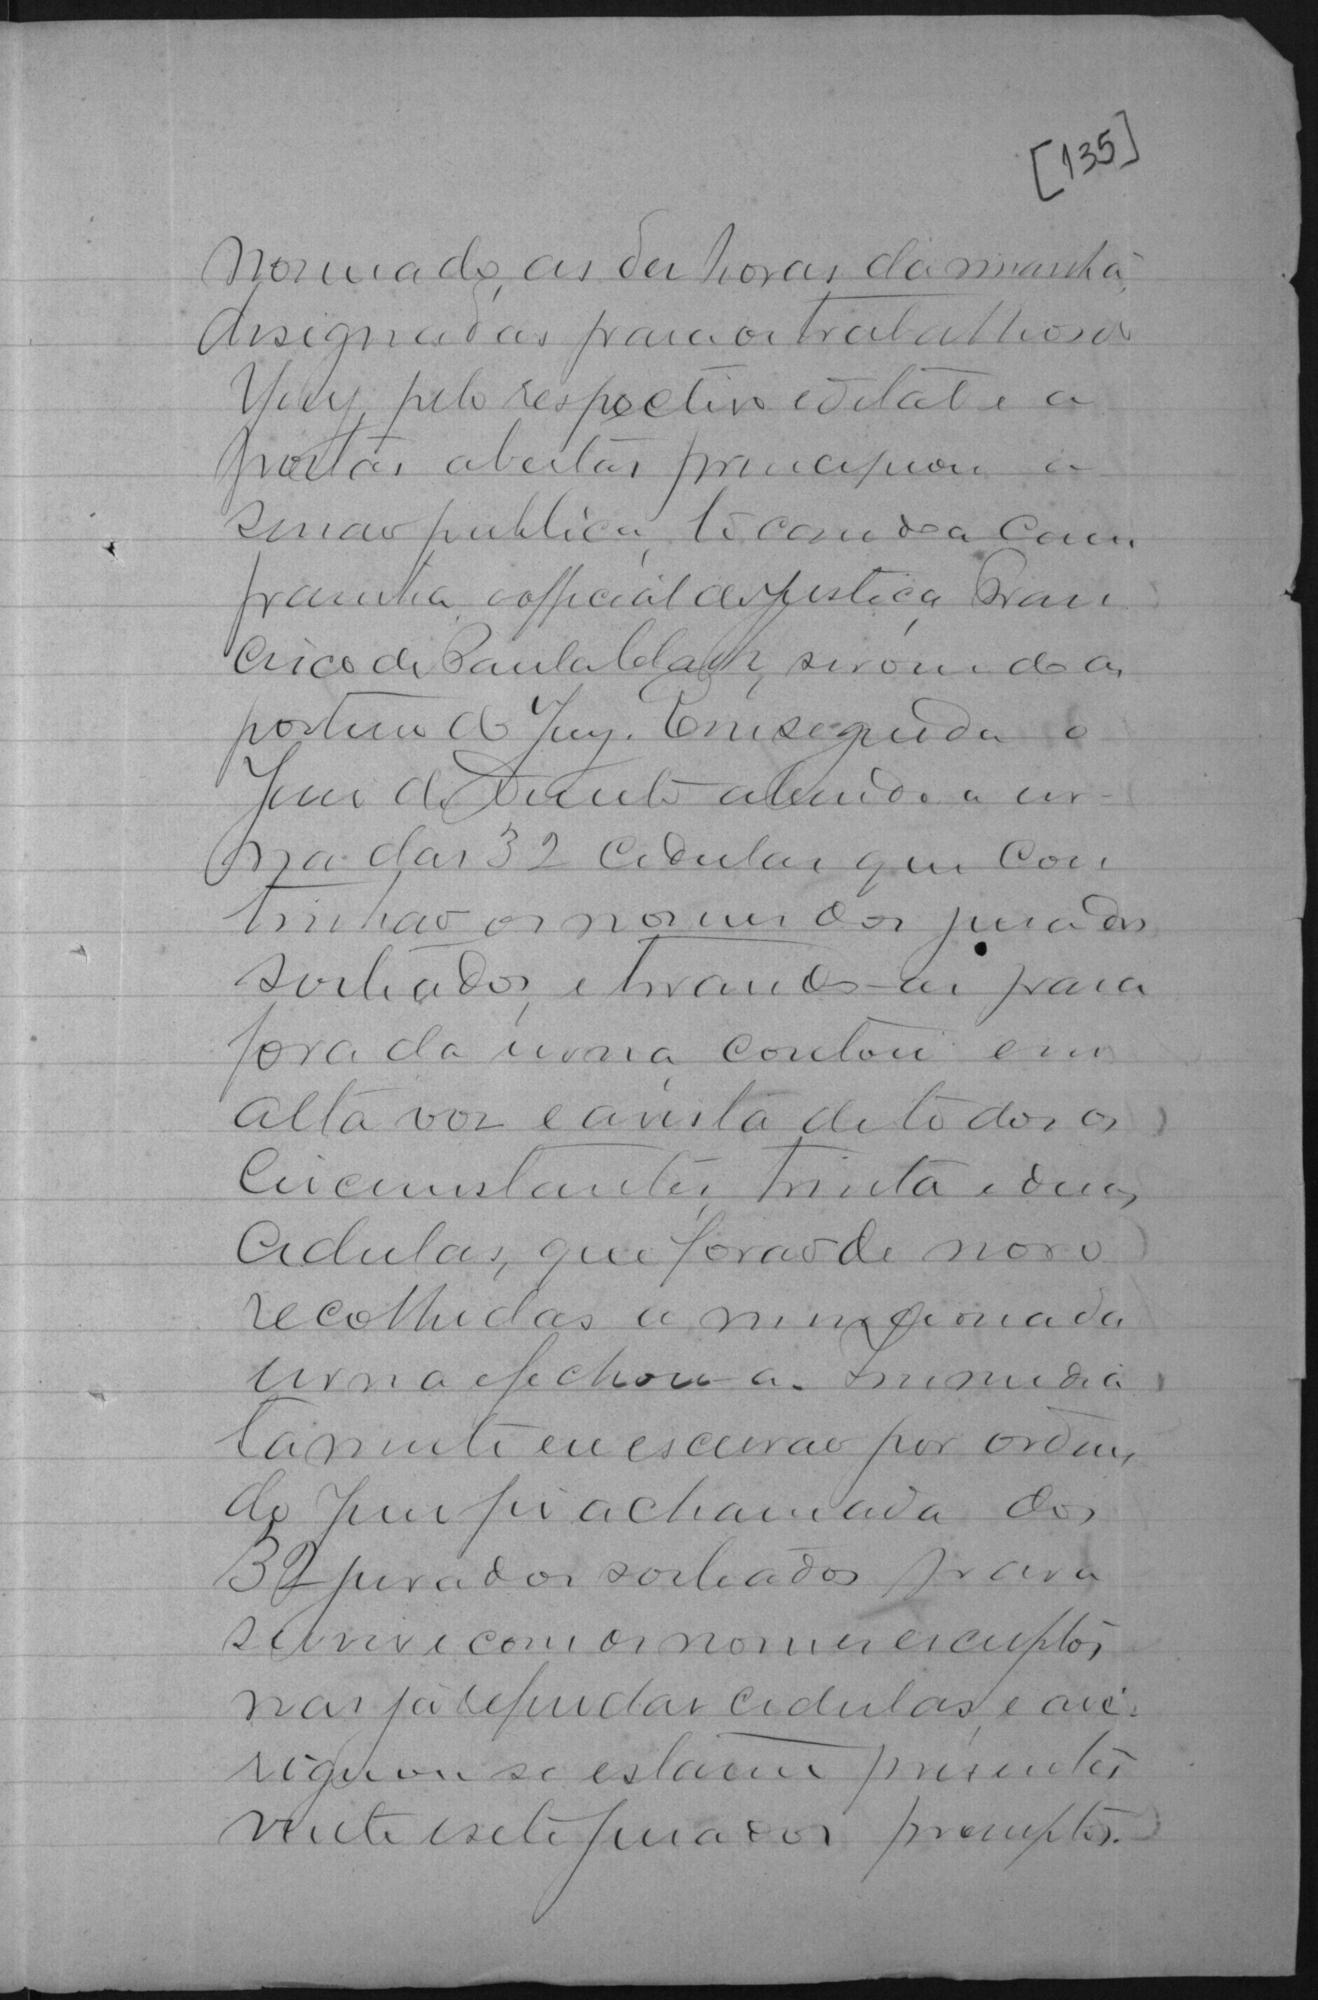 [135]
nomeado, as dez horas da manhã,
designadas para os trabalhos do
Jury, pelo respectivo edital e a
portas abertas principiou a
sessão publica, tocando a cam
painha o official de justiça Fran
cisco de Paula servindo de
porteiro do Jury. Em seguida o
Juiz de Direito abrindo a ur-
na das 32 cedulas que con
tinhão os nomes dos jurados
sorteados, e tirando-as para
fora da urna, contou em
alta voz e a vista de todos os
circumstantes, trinta e duas
cedulas, que forão de novo
recolhidas a mencionada
urna e fechou-a. Immedia
tamente eu escrivão por ordem
do Juiz fiz a chamada dos
32 jurados sorteados para
servir e com os nomes escriptos
nas já referidas cedulas, e ave-
riguou se estarem presentes
vinte e sete jurados promptos.